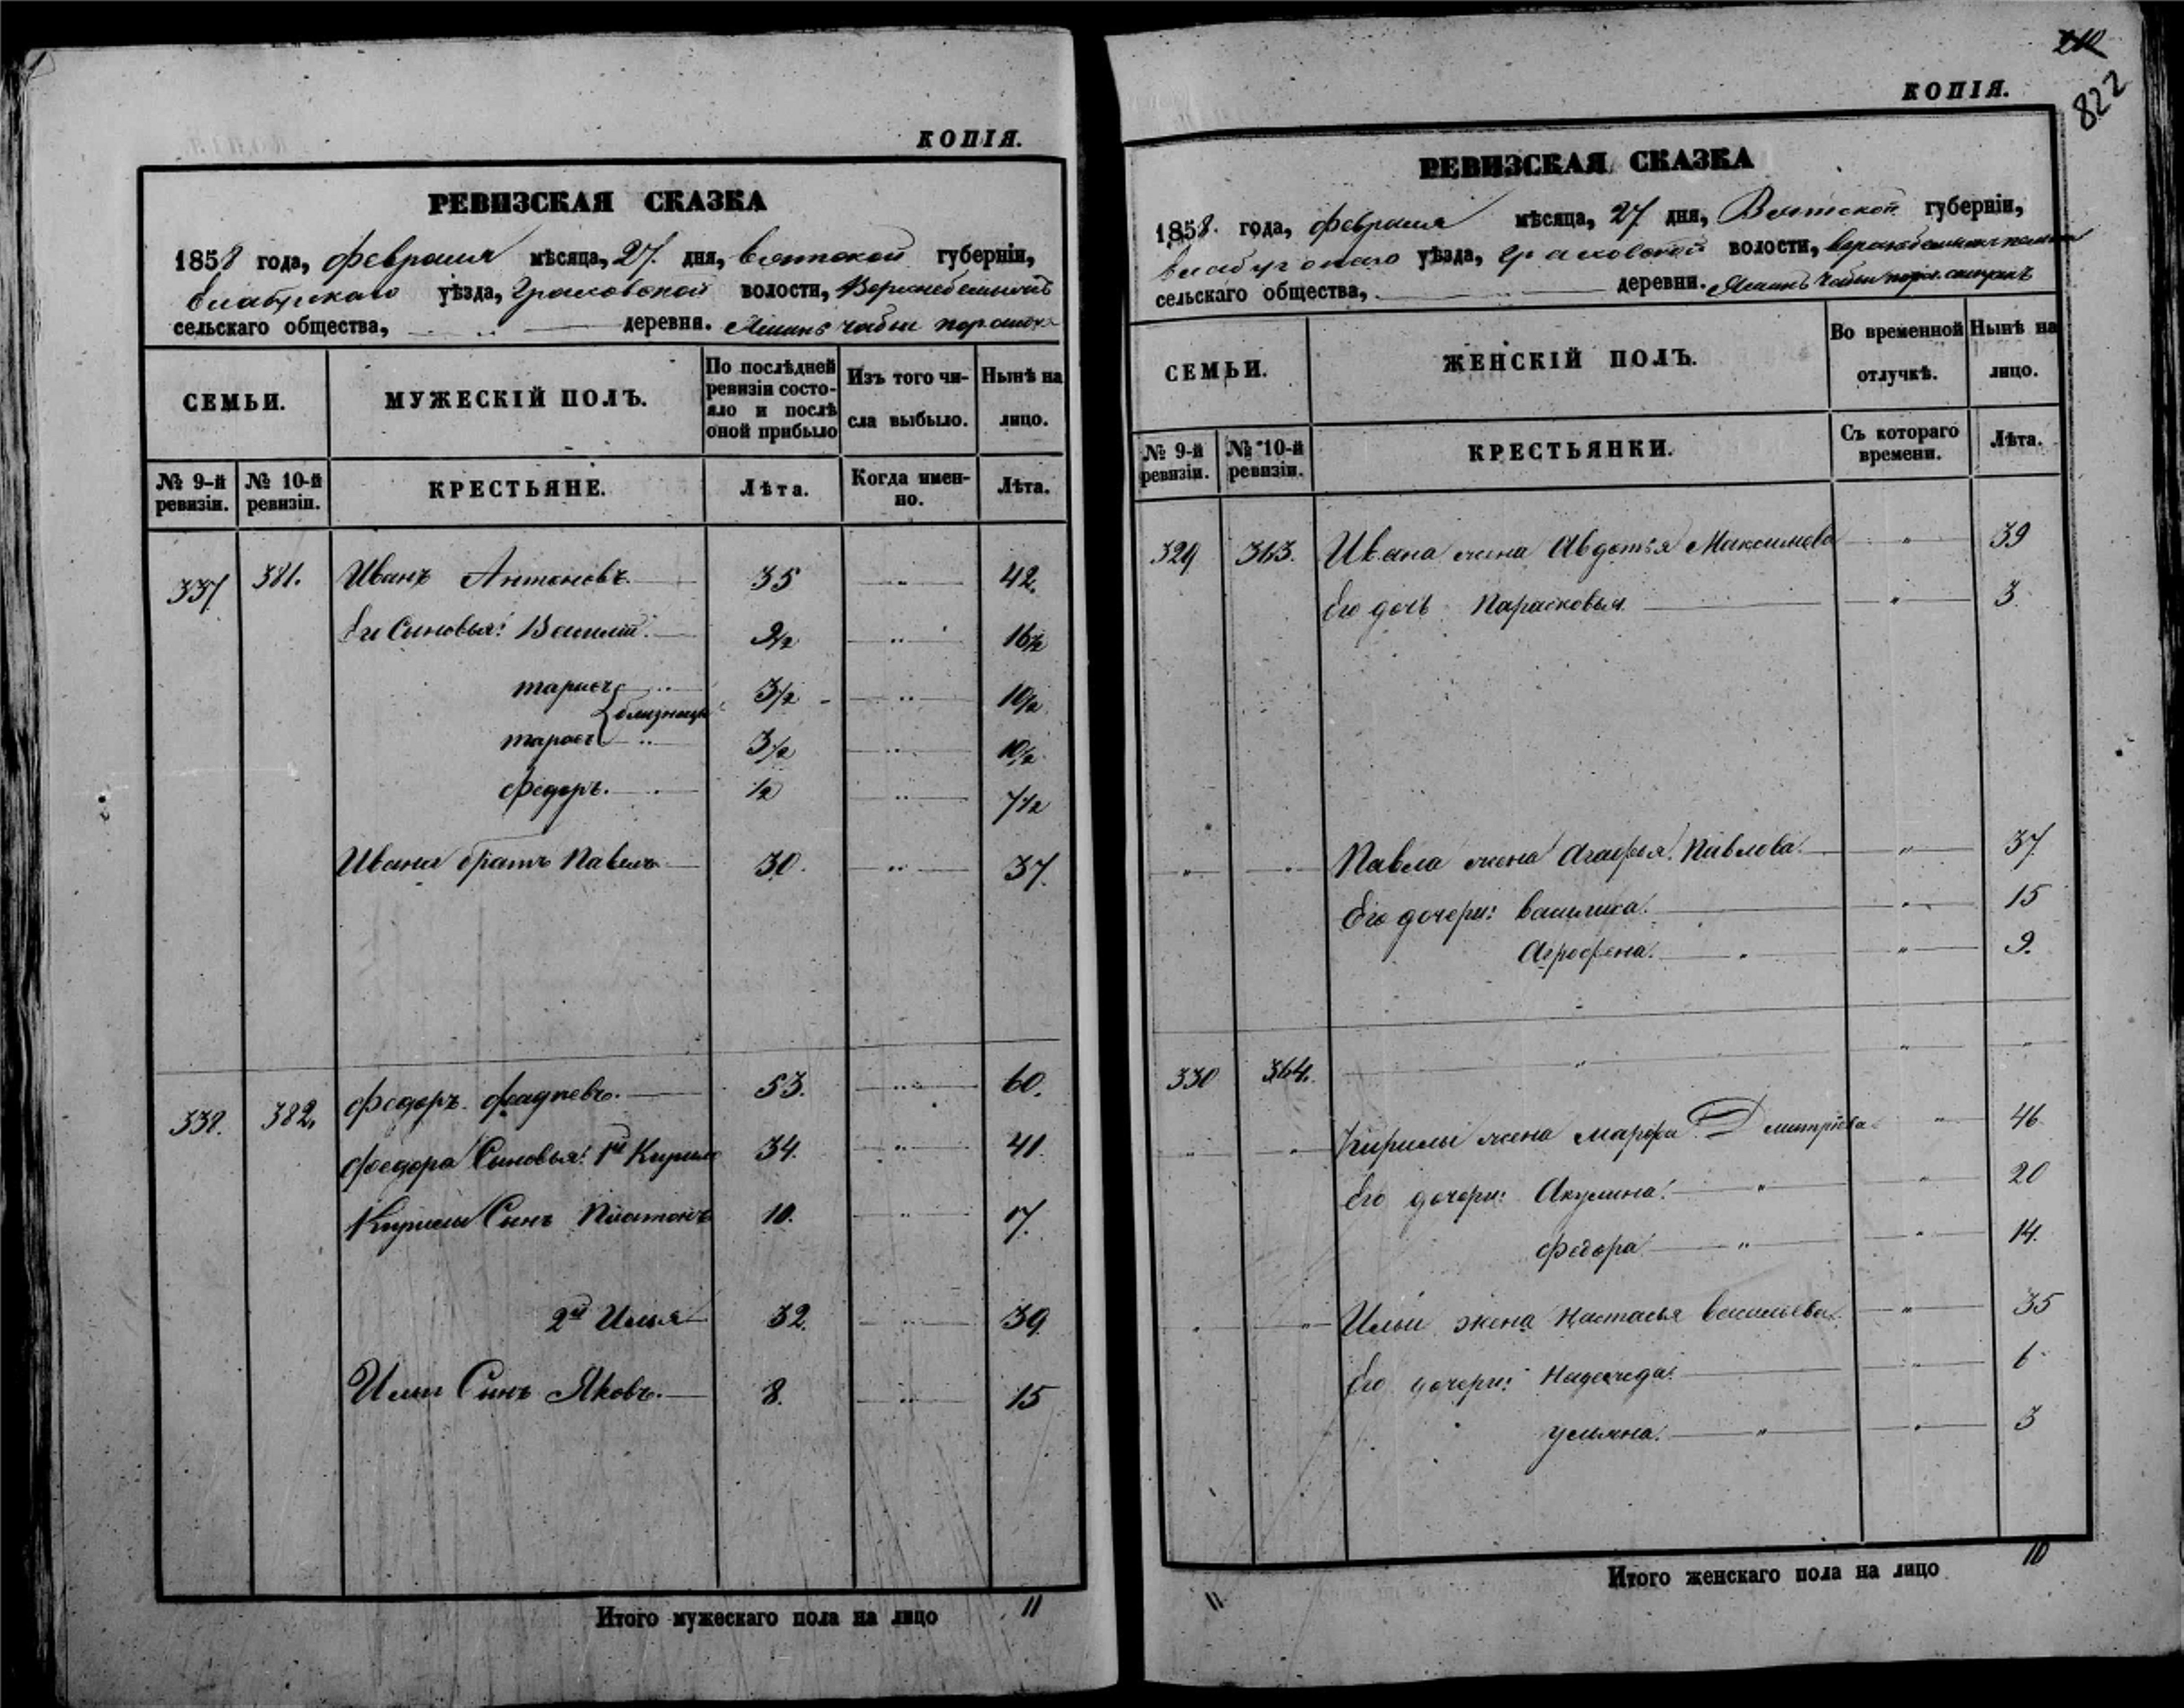 КОПІЯ.
РЕВИЗСКАЯ СКАЗКА
1858 года, февраля мѣсяца, 27. дня, Вятской губерніи,
Елабужскаго уѣзда, Граховской волости,
сельскаго общества, деревни.
СЕМЬИ.
МУЖЕСКІЙ ПОЛЪ.
По послѣдней ревизіи состояло и послѣ оной прибыло
Изъ того числа выбыло.
Нынѣ на лицо.
№ 9-й ревизіи.
№ 10-й ревизіи.
КРЕСТЬЯНЕ.
Лѣта.
Когда именно.
Лѣта.
337 381. Иванъ Антоновъ. 35 42.
Его Сыновья: Василій. 9½ 16½
тарасъ 3½ 10½
близнецы
тарасъ 3½ 10½
Федоръ. ½ 7½
Ивана братъ Павелъ 30. 37.
338. 382. Федоръ Фадѣевъ. 53. 60.
Федора Сыновья: 1й Кирило 34. 41.
Кирилы Сынъ Платонъ 10. 17.
2й Илья 32. 39.
Ильи Сынъ Яковъ. 8. 15
Итого мужескаго пола на лицо 11
822
КОПІЯ.
РЕВИЗСКАЯ СКАЗКА
1858. года, февраля мѣсяца, 27. дня, Вятской губерніи,
уѣзда, Граховской волости,
сельскаго общества, деревни.
СЕМЬИ.
ЖЕНСКІЙ ПОЛЪ.
Во временной отлучкѣ.
Нынѣ на лицо.
№ 9-й ревизіи.
№ 10-й ревизіи.
КРЕСТЬЯНКИ.
Съ котораго времени.
Лѣта.
329 363. Ивана жена Авдотья Максимова 39
Его дочь Парасковья 3.
Павла жена Агафья Павлова. 37.
Его дочери: Василиса. 15
Агрофена. 9.
330 364.
Кирилы жена Марфа Дмитріева 46
Его дочери: Акулина. 20
Федора 14.
Ильи жена Настасья Васильева. 35
Его дочери: Надежда. 6
Ульяна. 3
Итого женскаго пола на лицо 10